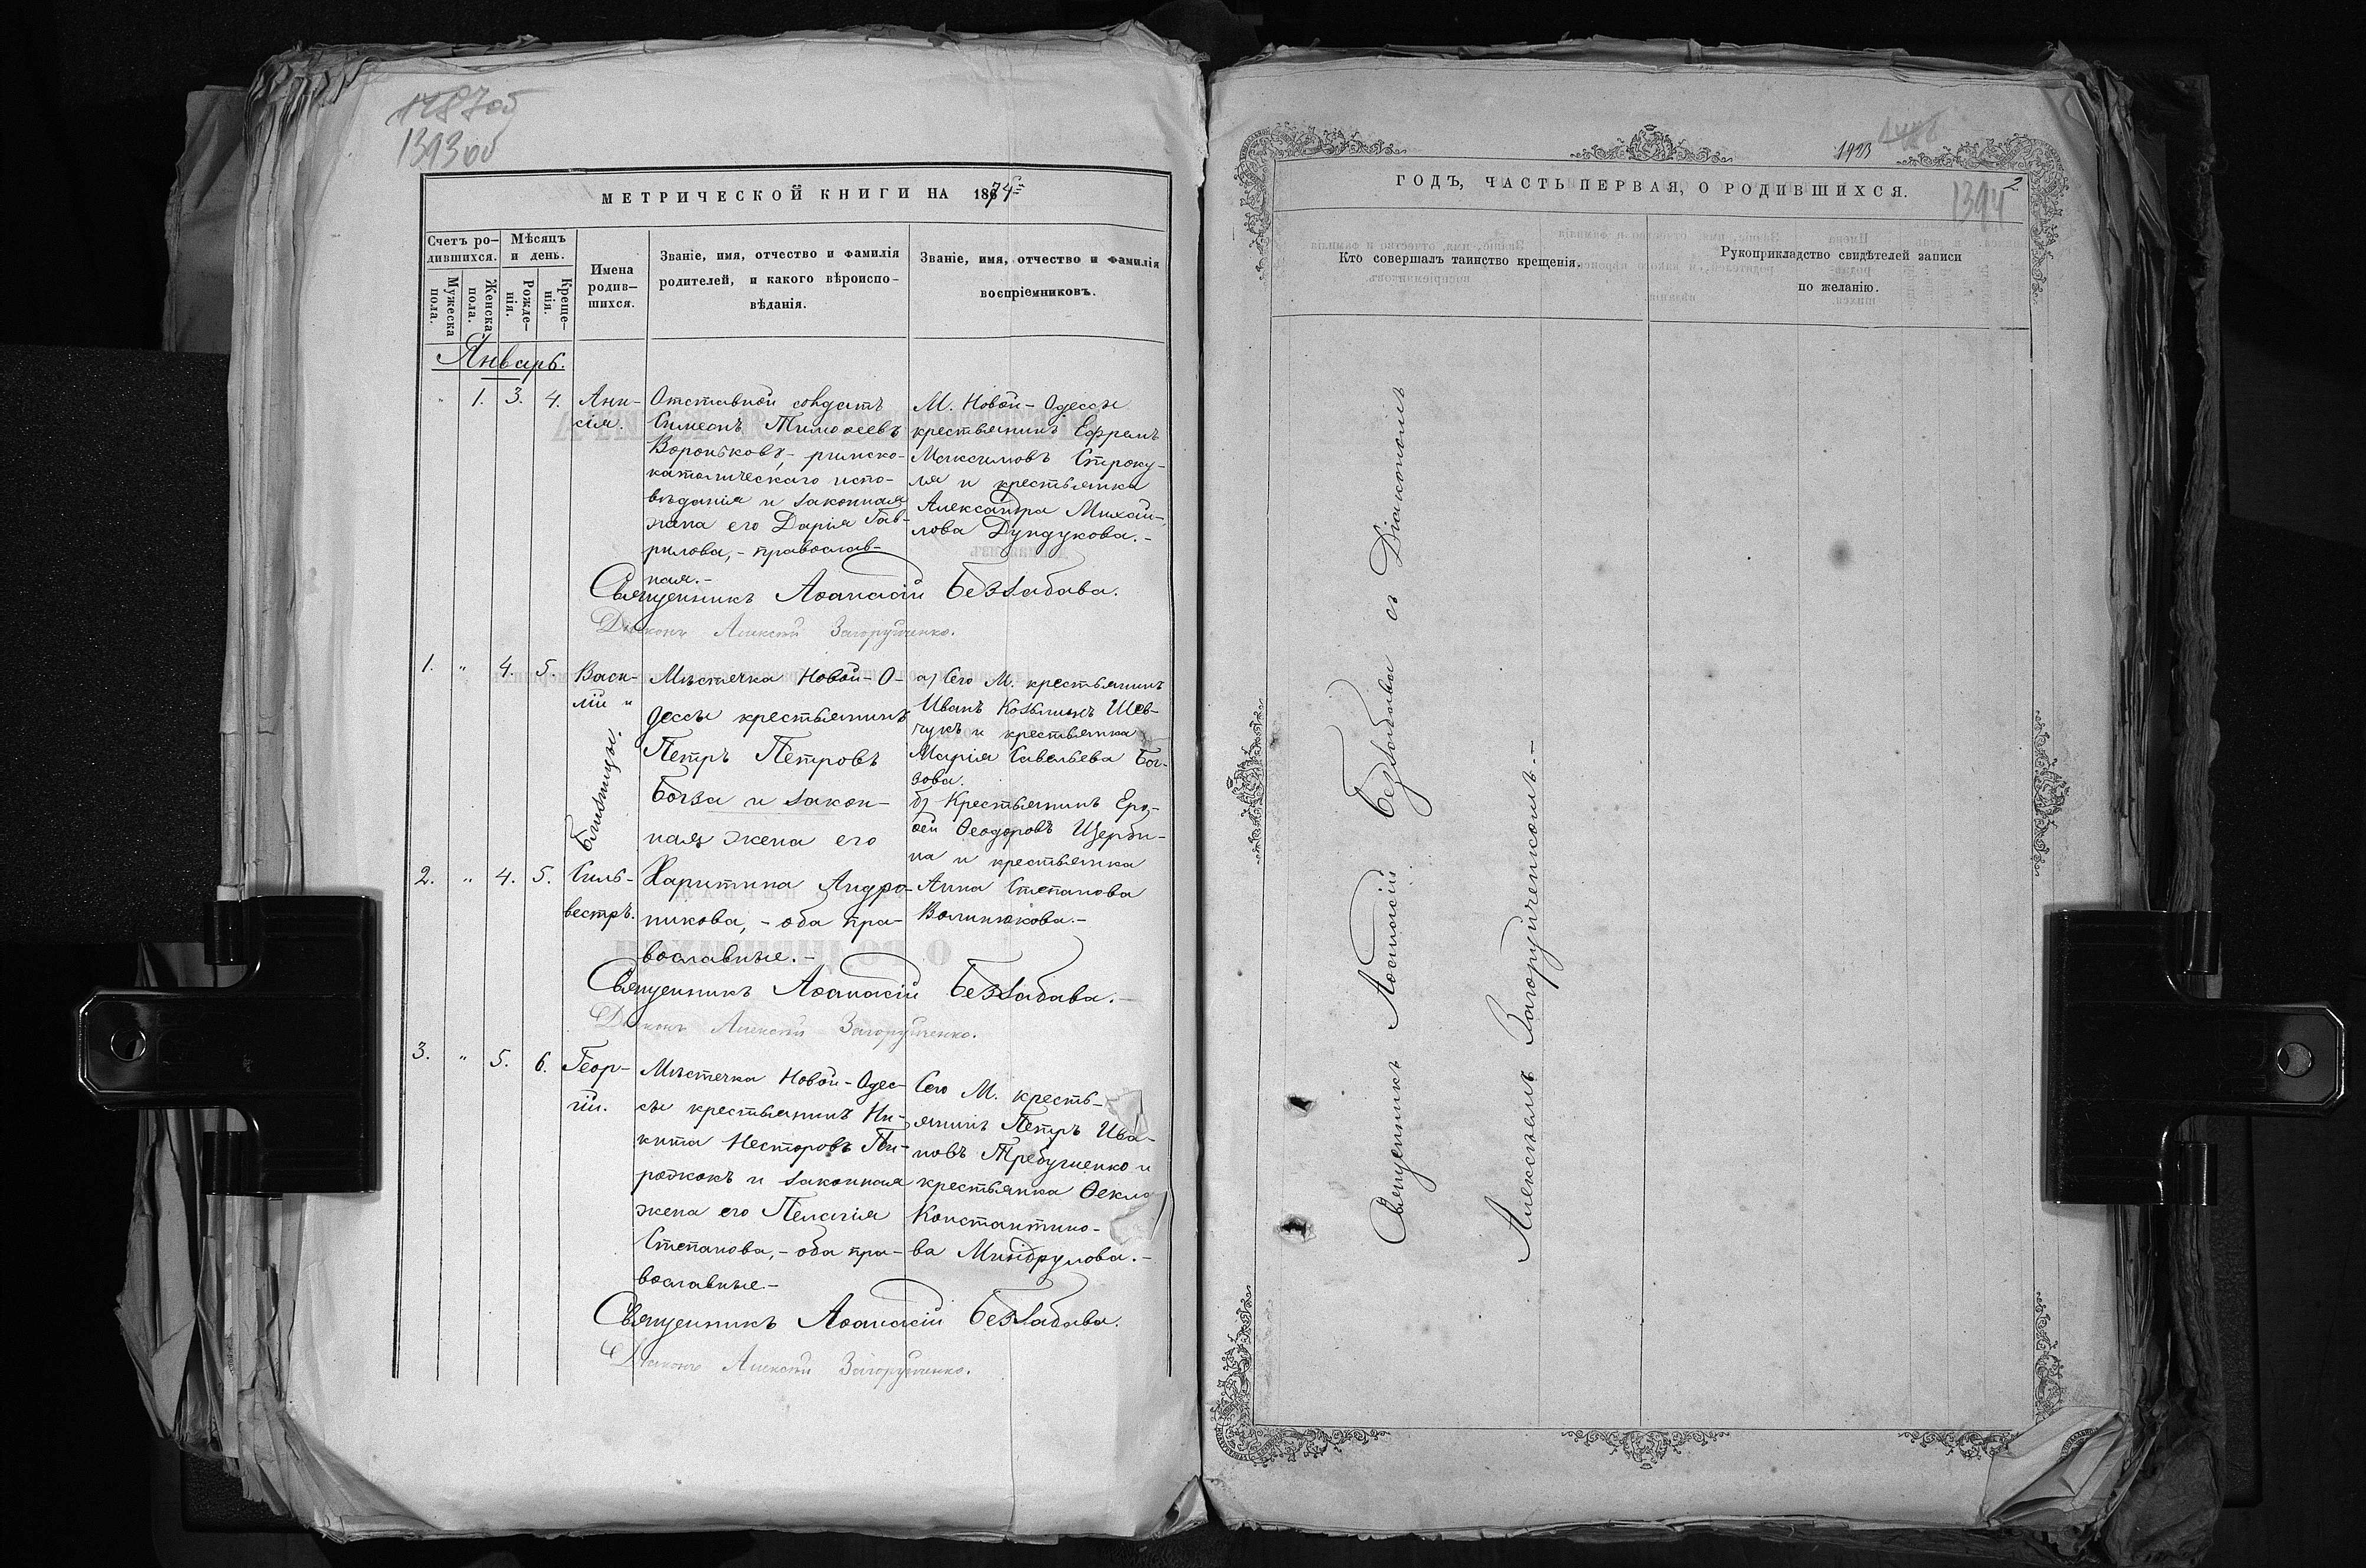 1393об
МЕТРИЧЕСКОЙ КНИГИ НА 1874
Счетъ ро-
дившихся.
Мужеска
пола.
Женска
пола.
Мѣсяцъ
и день.
Рожде-
нія.
Креще-
нія.
Имена
родив-
шихся.
Званіе, имя, отчество и фамилія
родителей, и какого вѣроиспо-
вѣданія.
Званіе, имя, отчество и фамилія
воспріемниковъ.
Январь.
" 1. 3. 4.
Ани-
сія.
Отставной солдатъ
Симеонъ Тимоѳеевъ
Вороньковъ, - римско-
католическаго испо-
вѣданія и законная
жена его Дарія Гав-
рилова, - православ-
ная. -
М. Новой-Одессы
крестьянинъ Ефремъ
Максимовъ Строку-
ля и крестьянка
Александра Михай-
лова Дундукова. -
Священникъ Аѳанасій Беззабава.
Діаконъ Алексѣй Загоруйченко.
1. " 4. 5.
Васи-
лій и
близнецы.
2. " 4. 5.
Силь-
вестръ.
Мѣстечка Новой-О-
дессы крестьянинъ
Петръ Петровъ
Богза и закон-
ная жена его
Харитина Андро-
никова, - оба пра-
вославные. -
а) Сего М. крестьянинъ
Иванъ Козьминъ Шев-
чукъ и крестьянка
Марія Савельева Бог-
зова.
б) Крестьянинъ Еро-
ѳей Ѳеодоровъ Щерби-
на и крестьянка
Анна Степанова
Волинюкова. -
Священникъ Аѳанасій Беззабава. -
Діаконъ Алексѣй Загоруйченко.
3. " 5. 6.
Геор-
гій.
Мѣстечка Новой-Одес-
сы крестьянинъ Ни-
кита Несторовъ Пи-
рожокъ и законная
жена его Пелагія
Степанова, - оба пра-
вославные -
Сего М. кресть-
янинъ Петръ Ива-
новъ Требушенко и
крестьянка Ѳекла
Константино-
ва Миндрулова. -
Священникъ Аѳанасій Беззабава.
Діаконъ Алексѣй Загоруйченко.
1923
1394
2
ГОДЪ, ЧАСТЬ ПЕРВАЯ, О РОДИВШИХСЯ.
Кто совершалъ таинство крещенія.
Рукоприкладство свидѣтелей записи
по желанію.
Священникъ Аѳанасій Беззабава съ Діакономъ
Алексѣемъ Загоруйченкомъ. -